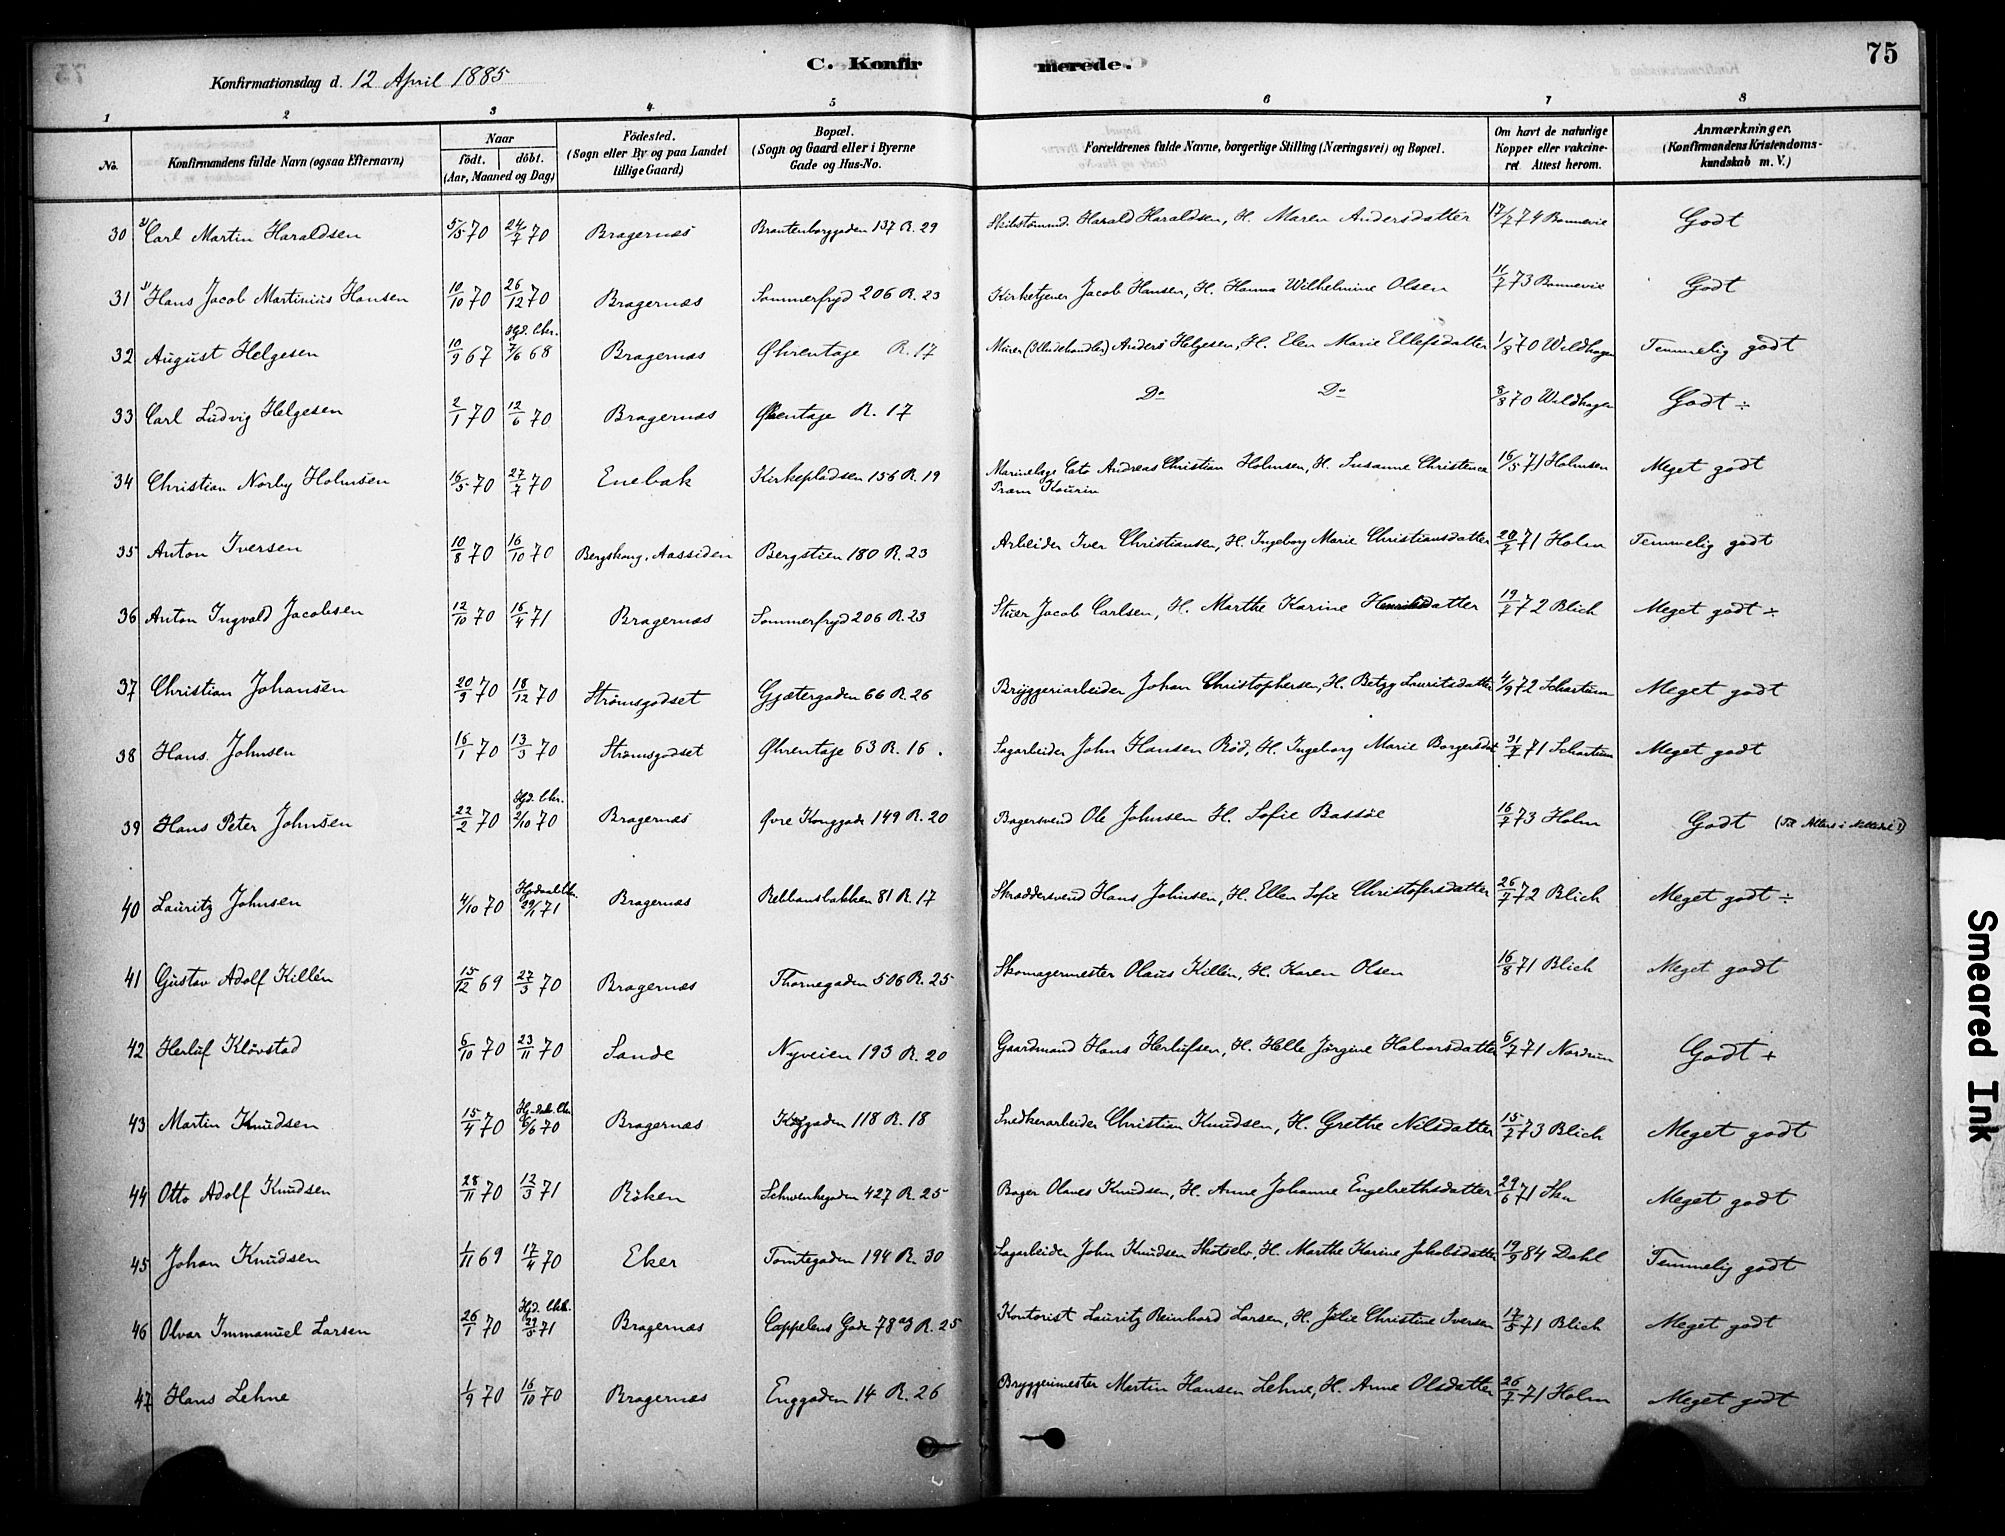 75
C. Konfir merede.
Konfirmationsdag d. 12 April 1885
1 2 3 4 5 6 7 8
No. Konfirmandens fulde Navn (ogsaa Efternavn) Naar födt. döbt. (Aar, Maaned og Dag) Födested. (Sogn eller By og paa Landet tillige Gaard) Bopæl. (Sogn og Gaard eller i Byerne Gade og Hus-No. Forældrenes fulde Navne, borgerlige Stilling (Næringsvei) og Bopæl. Om havt de naturlige Kopper eller vakcineret. Attest herom. Anmærkninger. (Konfirmandens Kristendomskundskab m. V.)
30 Carl Martin Haraldsen 5/5 70 24/7 70 Bragernæs Brantenborggaden 137 R. 29 Harald Haraldsen, H. Maren Andersdatter 17/7 74 Bonnevie Godt
31 Hans Jacob Martinius Hansen 10/10 70 26/12 70 Bragernæs Sommerfryd 206 R. 23 Kirketjener Jacob Hansen, H. Hanna Wilhelmine Olsen 11/7 73 Bonnevie Godt
32 August Helgesen 10/9 67 Hjd. Chr. 7/6 68 Bragernæs Øhrentage R. 17 Murer (Kludehandler) Anders Helgesen, H. Elen Marie Ellefsdatter 1/8 70 Wildhagen Temmelig godt
33 Carl Ludvig Helgesen 2/1 70 12/6 70 Bragernæs Øhrentage R. 17 Do Do 8/8 70 Wildhagen Godt ÷
34 Christian Norby Holmsen 16/5 70 27/7 70 Enebak Kirkepladsen 156 R. 19 Marinelæge Cato Andreas Christian Holmsen, H. Susanne Christence Pram Kaurin 16/5 71 Holmsen Meget godt
35 Anton Iversen 10/8 70 16/10 70 Bergskoug, Aassiden Bergstien 180 R. 23 Arbeider Iver Christiansen, H. Ingeborg Marie Christiansdatter 20/7 71 Holm Temmelig godt
36 Anton Ingvald Jacobsen 12/10 70 16/4 71 Bragernæs Sommerfryd 206 R. 23 Stuer Jacob Carlsen, H. Marthe Karine Henriksdatter 19/7 72 Blich Meget godt ÷
37 Christian Johansen 20/9 70 18/12 70 Strømsgodset Gjætergaden 66 R. 26 Bryggeriarbeider Johan Christophersen, H. Betzy Lauritsdatter 4/9 72 Schartum Meget godt
38 Hans Johnsen 16/1 70 13/3 70 Strømsgodset Øhrentage 63 R. 16. Sagarbeider John Hansen Rød, H. Ingeborg Marie Borgersdat 31/7 71 Schartum Meget godt
39 Hans Peter Johnsen 22/2 70 Hjd. Chr. 2/10 70 Bragernæs Øvre Konggade 149 R. 20 Bagersvend Ole Johnsen H. Sofie Bassøe 16/7 73 Holm Godt
40 Lauritz Johnsen 4/10 70 29/1 71 Bragernæs Rebbansbakken 81 R. 17 Skraddersvend Hans Johnsen, H. Ellen Sofie Christofersdatter 26/7 72 Blich Meget godt ÷
41 Gustav Adolf Killén 15/12 69 27/3 70 Bragernæs Thornegaden 506 R. 25 Skomagermester Olaus Killén, H. Karen Olsen 16/8 71 Blich Meget godt
42 Herluf Klövstad 6/10 70 23/11 70 Sande Nyveien 193 R. 20 Gaardmand Hans Herlufsen, H. Helle Jörgine Halvorsdatter 6/7 71 Nordrum Godt +
43 Martin Knudsen 15/4 70 6/6 70 Bragernæs 118 R. 18 Snedkerarbeider Christian Knudsen, H. Grethe Nilsdatter 15/7 73 Blich Meget godt
44 Otto Adolf Knudsen 28/11 70 12/3 71 Röken Schwenkegaden 427 R. 25 Bager Olaves Knudsen, H. Anne Johanne Engelrethsdatter 29/6 71 Meget godt
45 Johan Knudsen 1/11 69 17/4 70 Eker Tomtegaden 194 R. 30 Sagarbeider John Knudsen Skotselv, H. Marthe Karine Jakobsdatter 19/9 84 Dahl Temmelig godt
46 Olvar Immanuel Larsen 26/1 70 Hjd. Chr. 29/5 71 Bragernæs Cappelens Gade 78 R. 25 Kontorist Lauritz Reinhard Larsen, H. Julie Christine Iversen 17/5 71 Blich Meget godt
47 Hans Lehne 1/9 70 16/10 70 Bragernæs Enggaden 14 R. 26 Bryggerimester Martin Hansen Lehne, H. Anne Olsdatter 26/7 71 Holm Meget godt
Smeared Ink